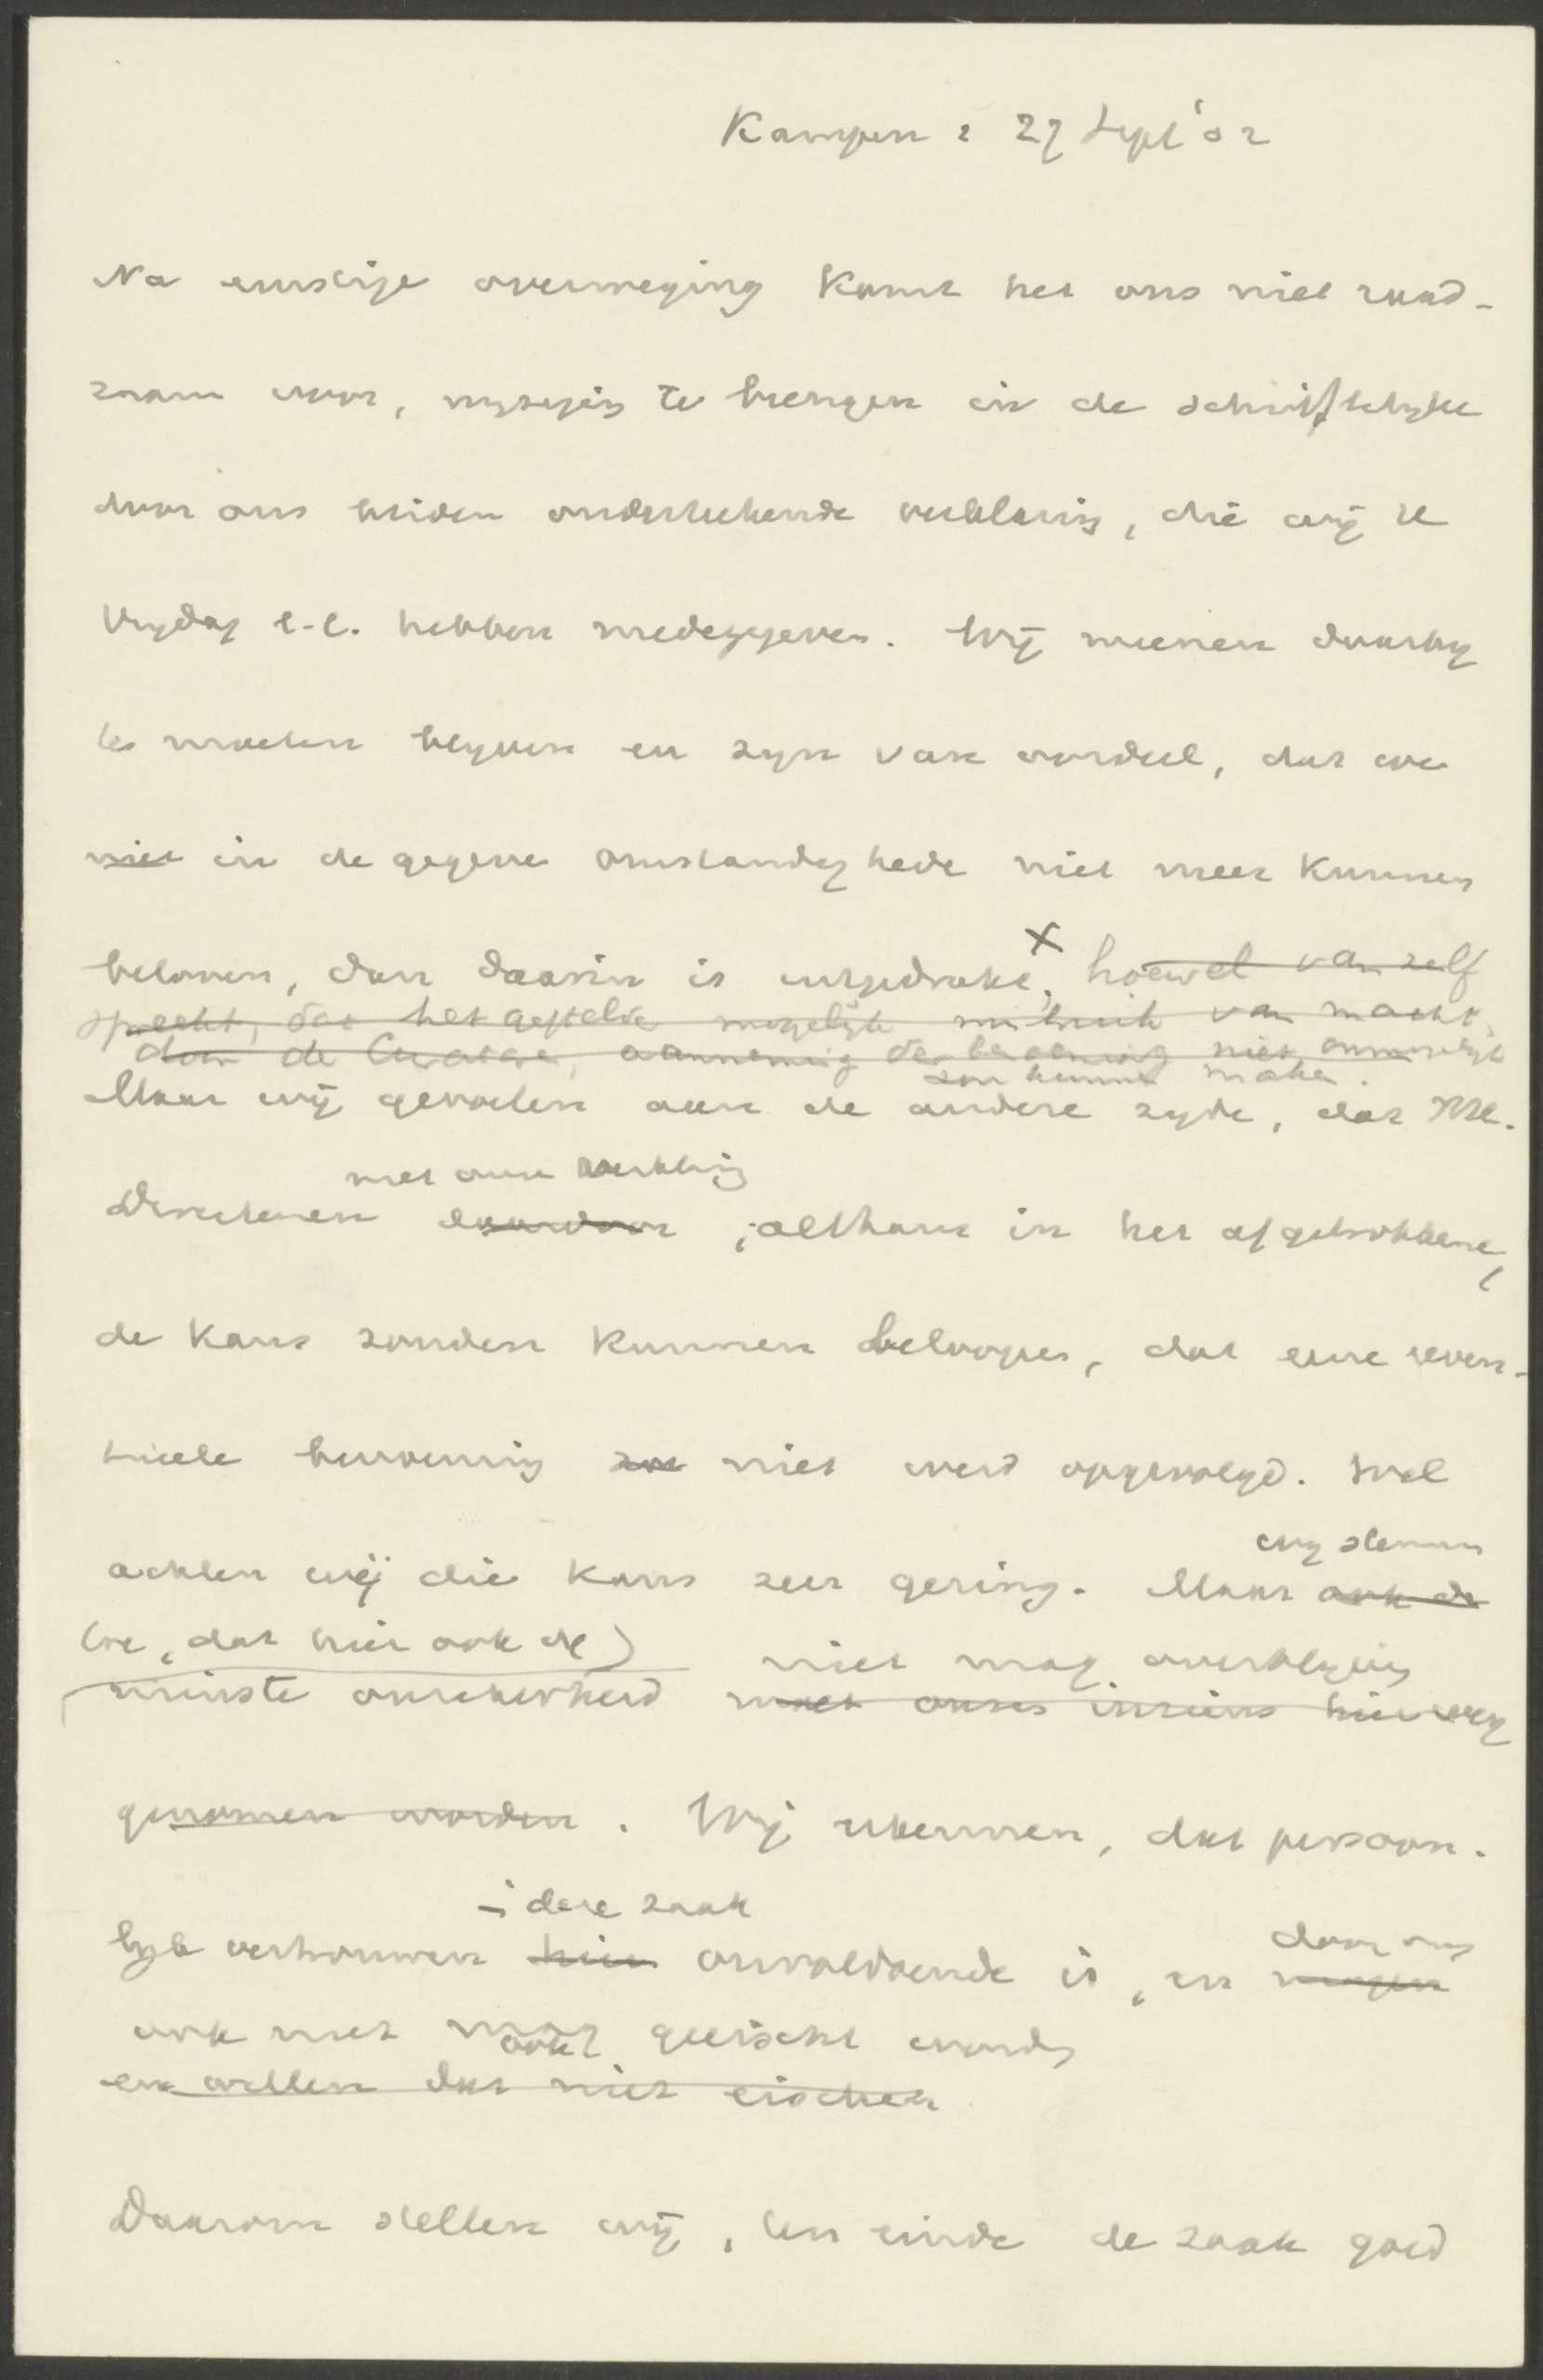 Kampen 27 Sept '02
Na ernstige overweging komt het ons niet raad-
zaam voor, wijziging te brengen in de schriftelijke
door ons beiden onderteekende verklaring, die wij U
Vrijdag l.l. hebben medegegeven. Wij meenen daarbij
te moeten blijven en zijn van oordeel, dat we
niet in de gegeve omstandighede niet meer kunnen
beloven, dan daarin is uitgedrukt, X hoewel vanzelf
spreekt, dat het gestelde mogelijk misbruik van macht,
door de Curatore, aanneming der benoeming niet onmogelijk
zou kunne make.
Maar wij gevoelen aan de andere zijde, dat HH.
met onze verklaring
Directeuren daardoor, althans in het afgetrokkene,
de kans zouden kunnen beloopen, dat eene even-
tueele benoeming zou niet werd opgevolgd. Wel
wij stemmen
achten wij die kans zeer gering. Maar ook de
toe, dat hier ook de
minste onzekerheid niet mag overblijven
moet onzes inziens hier weg
genomen worden. Wij erkennen, dat persoon-
in deze zaak
lijk vertrouwen hier onvoldoende is, en door ons
mogen
ook niet mag ook geëischt worden
en willen dat niet eischen
Daarom stellen wij, ten einde de zaak goed